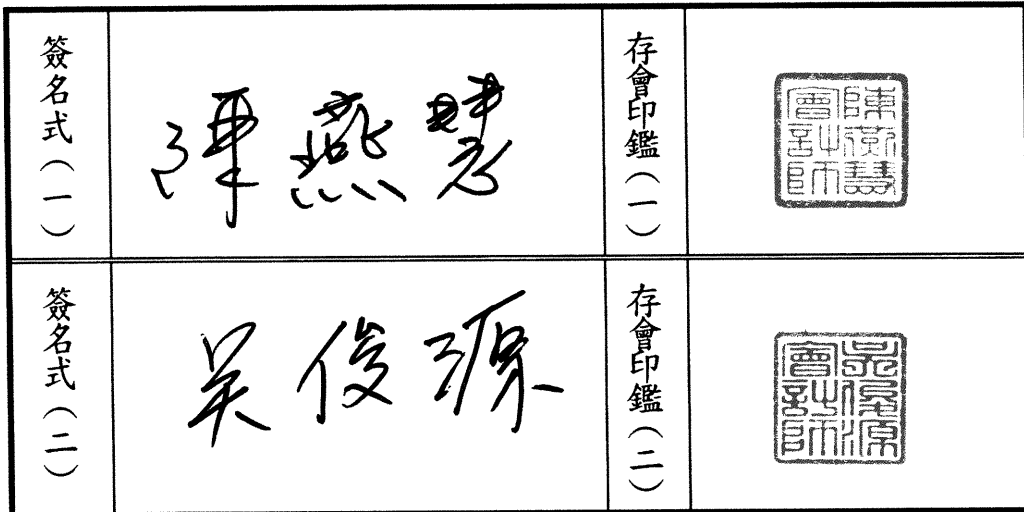 簽名式(一)
陳燕慧
存會印鑑(一)
陳燕慧會計師
簽名式(二)
吳俊源
存會印鑑(二)
吳俊源會計師